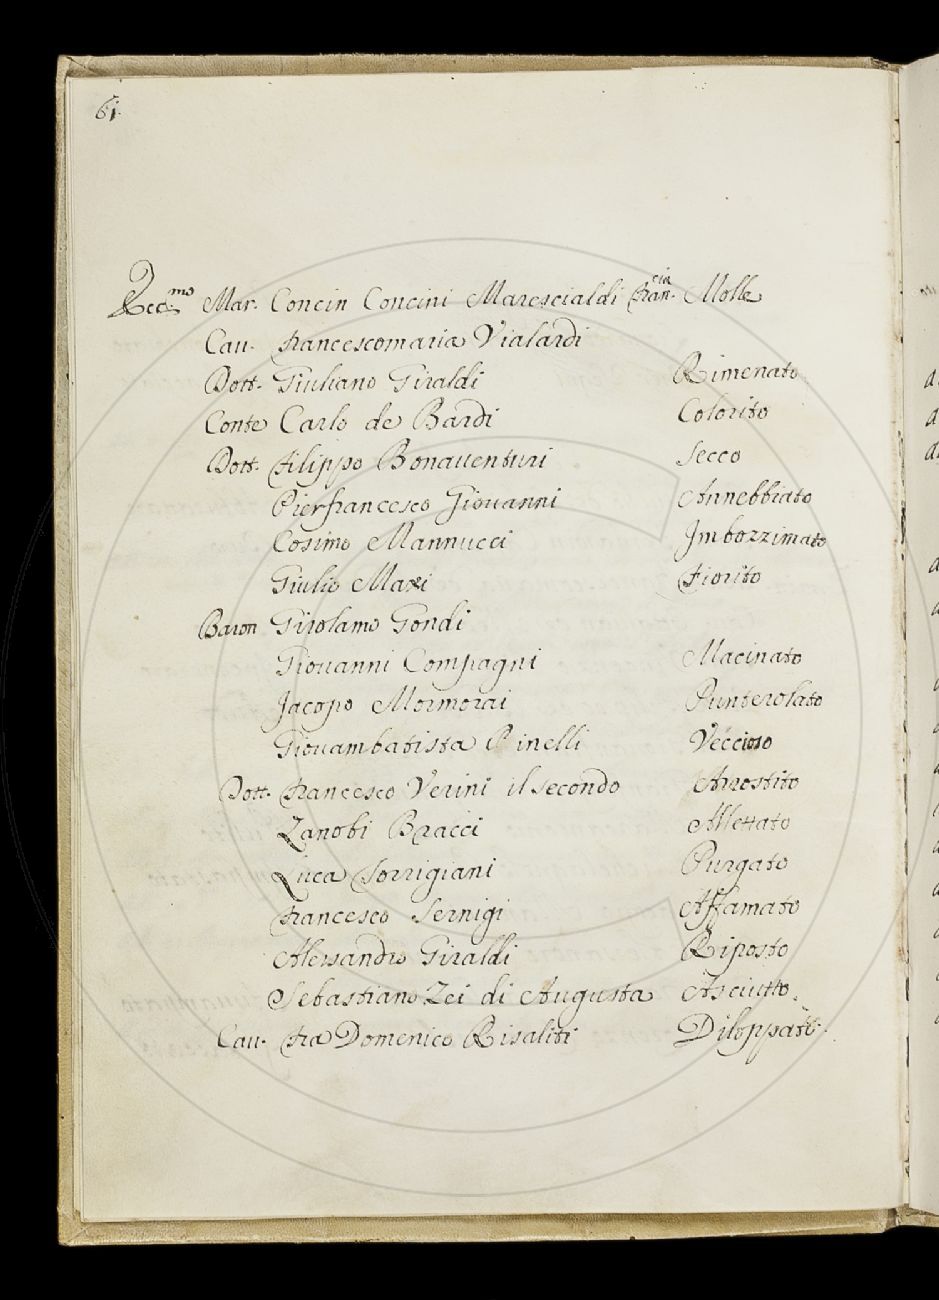 61.
Ecc.mo Mar. Concin Concini Marescialdi Fran.cia Molle
Cau. Francescomaria Vialardi
Dott. Giuliano Giraldi Rimenato
Conte Carlo de Bardi Colorito
Dott. Filippo Bonauenturi Secco
Pierfrancesco Giouanni Annebbiato
Cosimo Mannucci Imbozzimato
Giulio Maxi Fiorito
Baron Girolamo Gondi
Giouanni Compagni Macinato
Jacopo Mormorai Punterolato
Giouambatista Pinelli Veccioso
Dott. Francesco Verini il Secondo Arrostito
Zanobi Bracci Allettato
Luca Torrigiani Purgato
Francesco Sernigi Affamato
Alessandro Giraldi Riposto
Sebastiano Zei di Augusta Asciutto.
Cau. Fra Domenico Risaliti Diloppato.